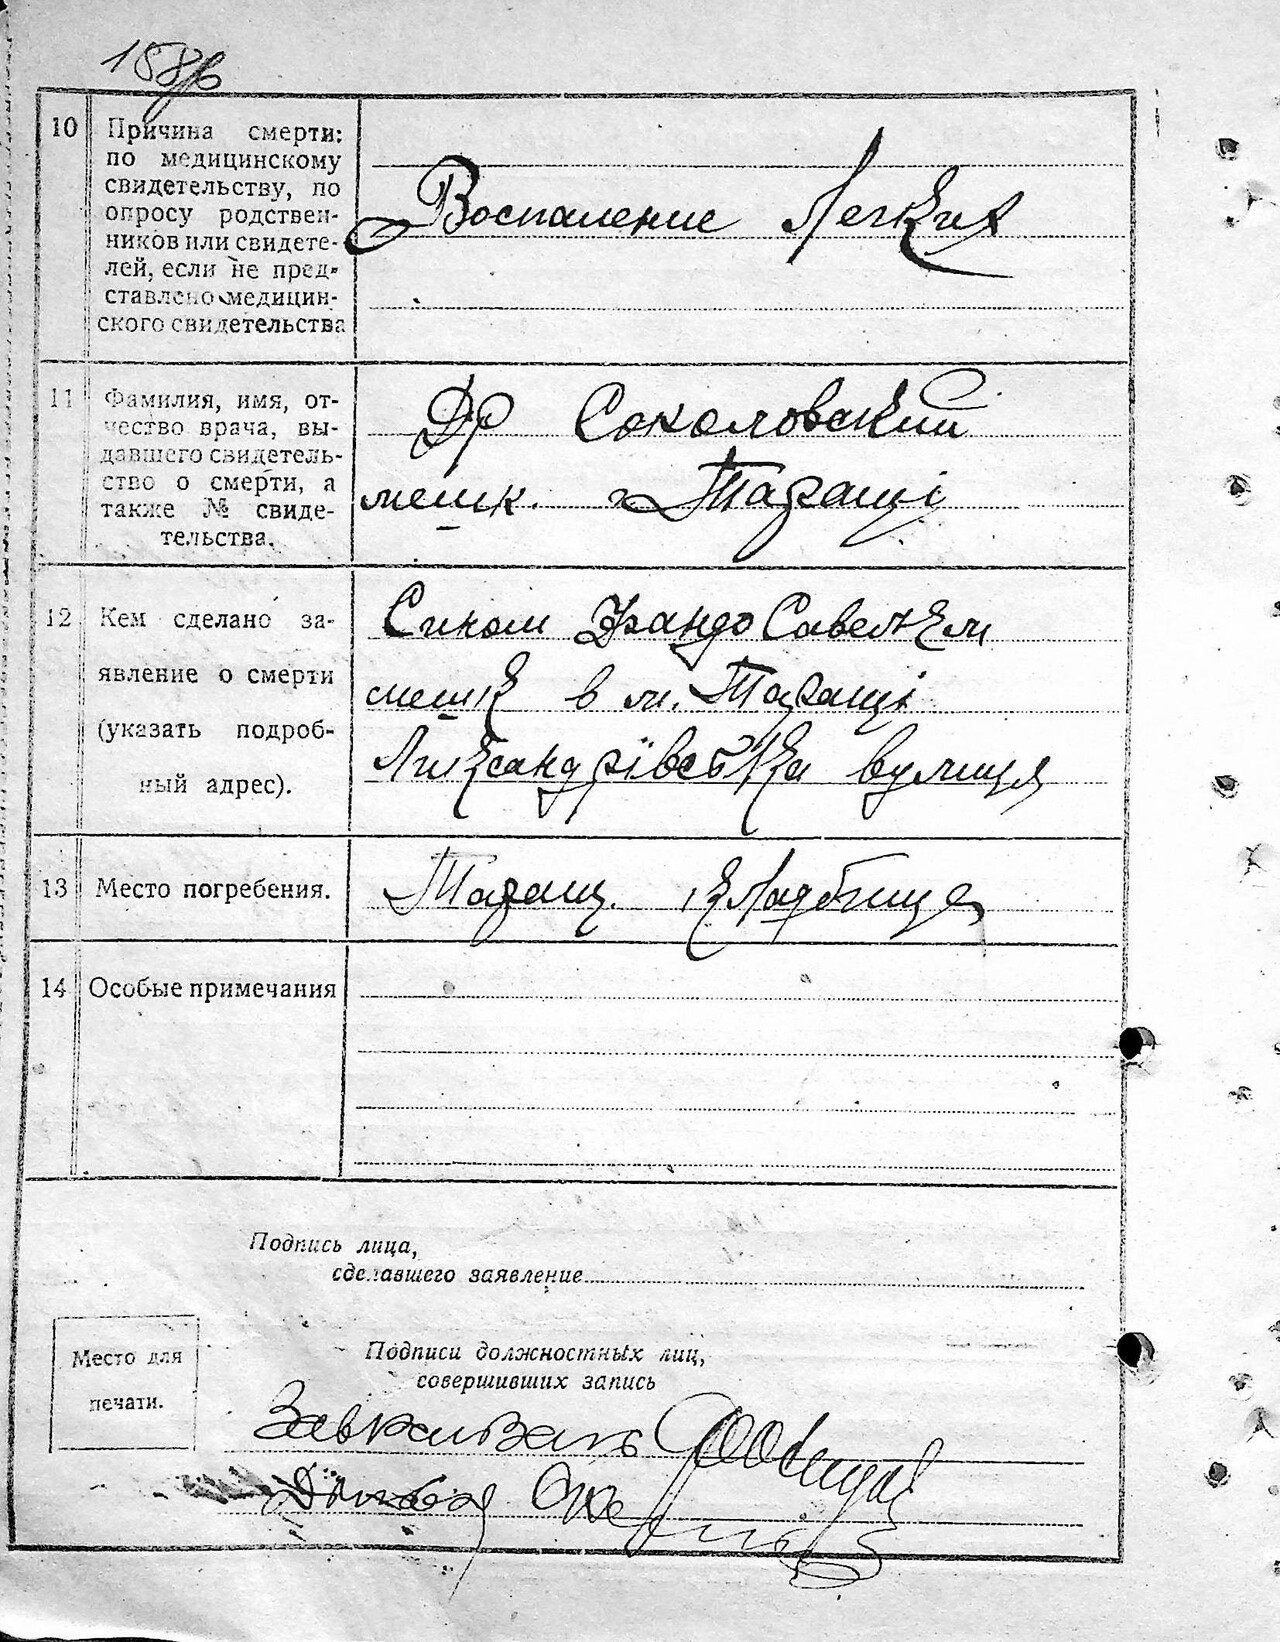 10 Причина смерти:
по медицинскому
свидетельству, по
опросу родствен-
ников или свидете-
лей, если не пред-
ставлено медицин-
ского свидетельства
Воспаление Легких
11 Фамилия, имя, от-
чество врача, вы-
давшего свидетель-
ство о смерти, а
также № свиде-
тельства.
Др Соколовский
мешк. Таращі
12 Кем сделано за-
явление о смерти
(указать подроб-
ный адрес).
Сином Савелием
мешк в м. Таращі
вулиця
13 Место погребения.
Таращ. кладбище
14 Особые примечания
Подпись лица,
сделавшего заявление
Место для
печати.
Подписи должностных лиц,
совершивших запись